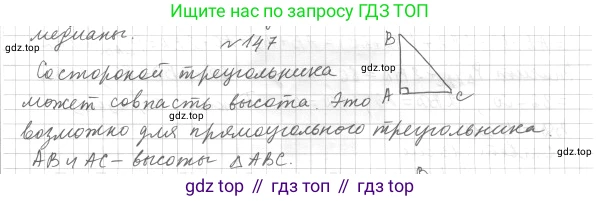 Ищите нас по запросу
ГДЗ ТОП
медианы.
№147
Со стороной треугольника
может совпасть высота. Это
возможно для прямоугольного треугольника.
AB и AC – высоты △ABC.
B
A
C
gdz.top
gdz.top
gdz.top
gdz top // гдз топ // gdz.top